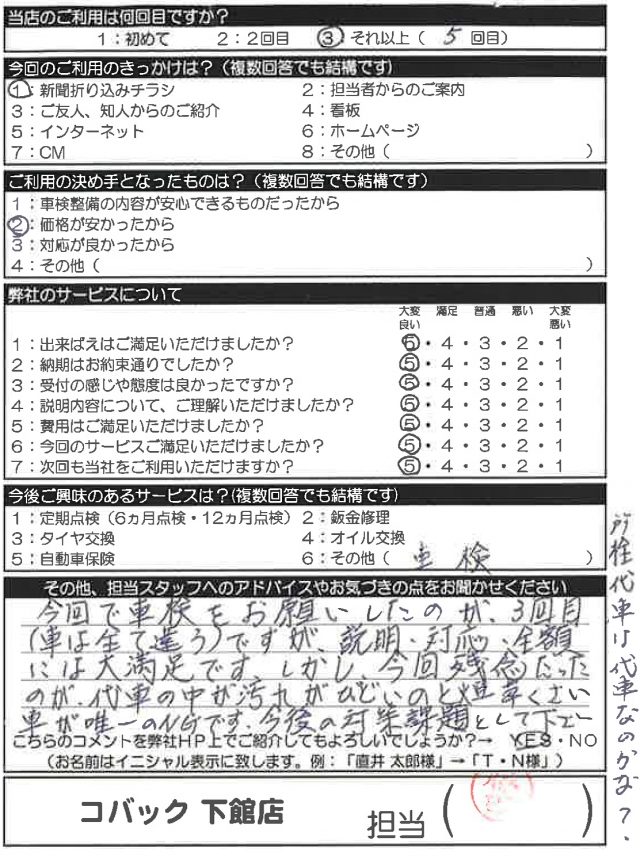 当店のご利用は何回目ですか?
1：初めて 2：2回目 ③：それ以上（ 5 回目）
今回のご利用のきっかけは？（複数回答でも結構です）
①：新聞折り込みチラシ 2：担当者からのご案内
3：ご友人、知人からのご紹介 4：看板
5：インターネット 6：ホームページ
7：CM 8：その他（ ）
ご利用の決め手となったものは？（複数回答でも結構です）
1：車検整備の内容が安心できるものだったから
②：価格が安かったから
3：対応が良かったから
4：その他（ ）
弊社のサービスについて
大変良い 満足 普通 悪い 大変悪い
1：出来ばえはご満足いただけましたか？ ⑤・4・3・2・1
2：納期はお約束通りでしたか？ ⑤・4・3・2・1
3：受付の感じや態度は良かったですか？ ⑤・4・3・2・1
4：説明内容について、ご理解いただけましたか？ ⑤・4・3・2・1
5：費用はご満足いただけましたか？ ⑤・4・3・2・1
6：今回のサービスご満足いただけましたか？ ⑤・4・3・2・1
7：次回も当社をご利用いただけますか？ ⑤・4・3・2・1
今後ご興味のあるサービスは？（複数回答でも結構です）
1：定期点検（6ヵ月点検・12ヵ月点検） 2：鈑金修理
3：タイヤ交換 4：オイル交換
5：自動車保険 6：その他（ 車検 ）
その他、担当スタッフへのアドバイスやお気づきの点をお聞かせください
今回で車検をお願いしたのが、3回目
（車は全て違う）ですが、説明・対応・金額
には大満足です。しかし、今回残念だった
のが、代車の中が汚れがひどいのと煙草くさい
車が唯一のNGです。今後の対策課題として下さい
所詮代車は代車なのかな？.
こちらのコメントを弊社HP上でご紹介してもよろしいでしょうか？→ YES・NO
（お名前はイニシャル表示に致します。例：「直井 太郎様」→「T・N様」）
コバック 下館店 担当（ ）